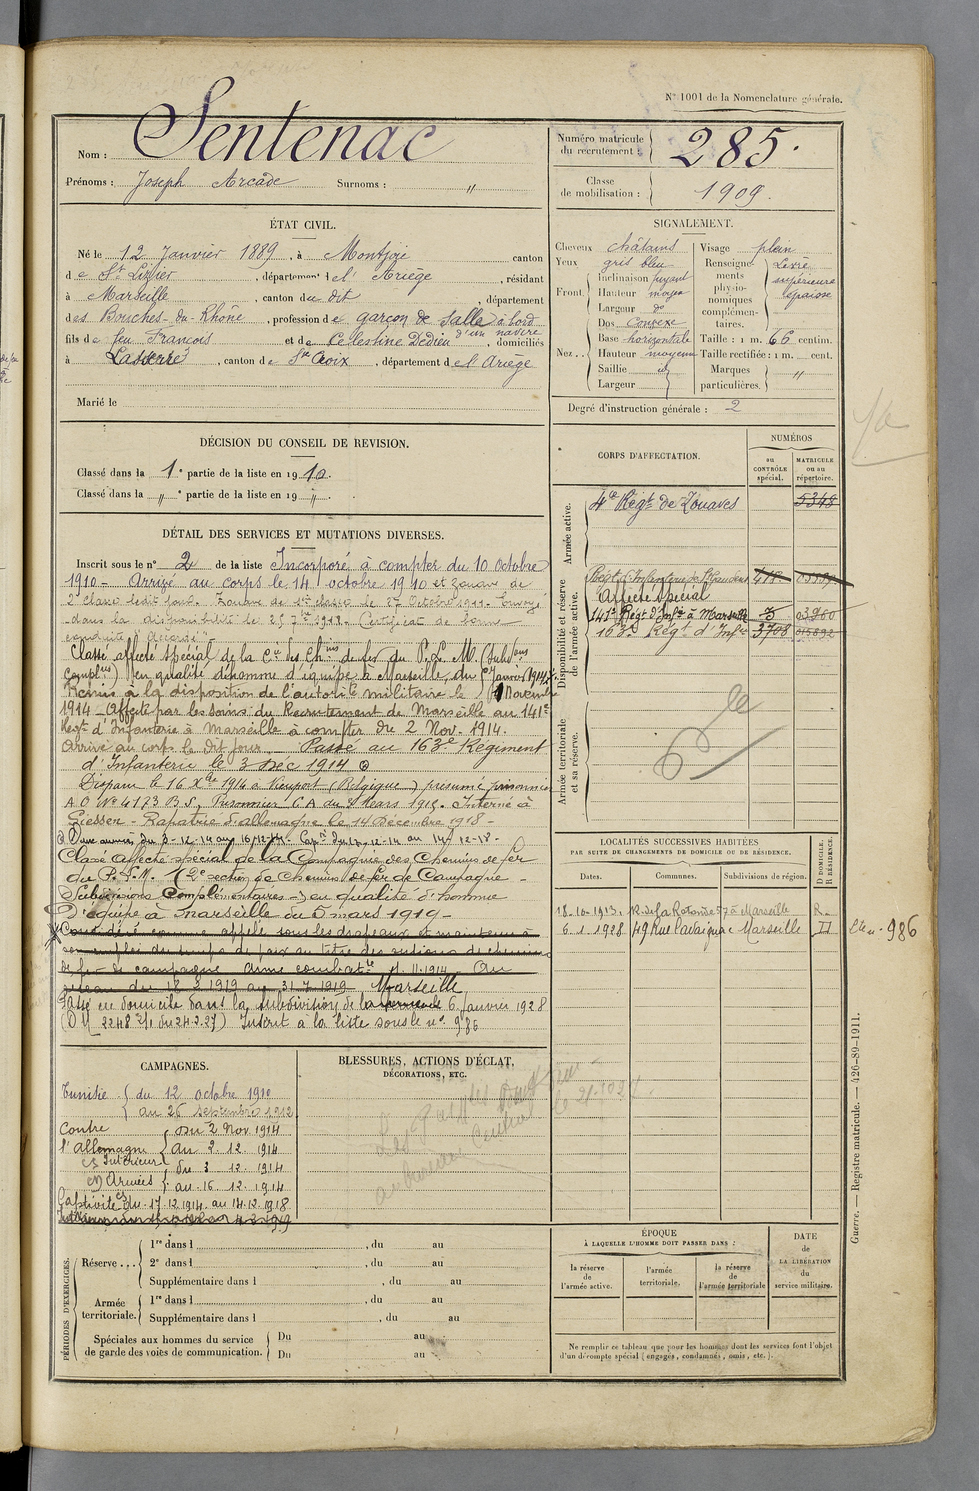 N° 1001 de la Nomenclature générale.
Nom : Sentenac
Prénoms : Joseph Arcade Surnoms : "
Numéro matricule du recrutement : 285.
Classe de mobilisation : 1909.
ÉTAT CIVIL.
Né le 12 Janvier 1889, à Montjoi canton
de St Lizier, département de l'Ariège, résidant
à Marseille, canton du dit, département
des Bouches-du-Rhône, profession de garçon de salle à bord
d'un navire
fils de feu François et de Célestine Dedieu, domiciliés
à Lasserre, canton de Ste Croix, département de l'Ariège
Marié le
SIGNALEMENT.
Cheveux châtains
Yeux gris bleu
Front. Inclinaison fuyant
Hauteur moyen
Largeur do
Nez. Dos convexe
Base horizontale
Hauteur moyenne
Saillie
Largeur
Visage plein
Renseignements physionomiques complémentaires. Lèvre supérieure épaisse
Taille : 1 m. 66 centim.
Taille rectifiée : 1 m. cent.
Marques particulières. "
Degré d'instruction générale : 2
DÉCISION DU CONSEIL DE REVISION.
Classé dans la 1e partie de la liste en 1910.
Classé dans la " e partie de la liste en 19 ".
DÉTAIL DES SERVICES ET MUTATIONS DIVERSES.
Inscrit sous le n° 2 de la liste Incorporé à compter du 10 octobre
1910 - Arrivé au corps le 14 octobre 1910 et zouave de
2e classe le dit jour. Zouave de 1ère classe le Octobre 1911. Envoyé
dans la disponibilité le 25 7bre 1912. Certificat de bonne
conduite "Accordé"
Classé affecté spécial de la Cie des Chins de fer du P. L. M. (Subdons
Complres) en qualité d'homme d'équipe à Marseille, du Janvier 1914
Remis à la disposition de l'autorité militaire le 1 Novembre
1914 - Affecté par les soins du Recrutement de Marseille au 141e
Régt d'Infanterie à Marseille à compter du 2 Nov. 1914.
Arrivé au corps le dit jour. Passé au 163e Régiment
d'Infanterie le 3 Dec 1914
Disparu le 16 Xbre 1914 à Nieuport (Belgique) présumé prisonnier
A. O No 4173 BS, Prisonnier C.A du Mars 1915. Interné à
Giessen - Rapatrié d'allemagne le 14 Décembre 1918 -
du 3-12-14 au 16/12/14. Capté du 17-12-14 au 14-12-18 -
Classé Affecté spécial de la Compagnie des Chemins de fer
du P. L. M. (2e section de Chemins de fer de Campagne -
Subdivisions Complémentaires -) en qualité d'homme
D'équipe à Marseille du 5 mars 1919 -
Considéré comme appelé sous les drapeaux et maintenu à
son emploi du temps de paix au titre des sections de chemins
de fer de campagne 11.11.1914 Au
du 18 2 1919 au 31 7 1919 Marseille
Passé en domicile dans la subdivision de 6 Janvier 1928
(D M 2248 2/1 du 24.2.27) Inscrit à la liste sous le no 986
CORPS D'AFFECTATION.
NUMÉROS
au CONTRÔLE spécial.
MATRICULE ou au répertoire.
Armée active.
4e Régt de Zouaves 5348
Disponibilité et réserve de l'armée active.
Régt d'Infanterie de St Gaudens 418
Affecté Spécial
141e Régt d'Infie à Marseille
163e Régt d'Infie 3708
Armée territoriale et sa réserve.
LOCALITÉS SUCCESSIVES HABITÉES
PAR SUITE DE CHANGEMENTS DE DOMICILE OU DE RÉSIDENCE.
Dates. Communes. Subdivisions de région. D DOMICILE. R RÉSIDENCE.
18-10-1913. R. de la Rotonde 57 à Marseille R -
6.1.1928 49 Rue Cavaignac Marseille D
986
CAMPAGNES.
Tunisie du 12 octobre 1910
au 26 septembre 1912
Contre l'Allemagne
Intérieur du 2 Nov. 1914
au 2. 12. 1914
Armées du 3 12. 1914
au 16. 12. 1914
Captivité du 17.12.1914. au 14.12.1918
BLESSURES, ACTIONS D'ÉCLAT,
DÉCORATIONS, ETC.
PÉRIODES D'EXERCICES.
Réserve... 1re dans l , du au
2e dans l , du au
Supplémentaire dans l , du au
Armée territoriale. 1re dans l , du au
Supplémentaire dans l , du au
Spéciales aux hommes du service de garde des voies de communication. Du au
Du au
ÉPOQUE
À LAQUELLE L'HOMME DOIT PASSER DANS :
la réserve de l'armée active.
l'armée territoriale.
la réserve de l'armée territoriale
DATE de LA LIBÉRATION du service militaire.
Ne remplir ce tableau que pour les hommes dont les services font l'objet
d'un décompte spécial (engagés, condamnés, omis, etc.).
Guerre. — Registre matricule. — 426-89-1911.